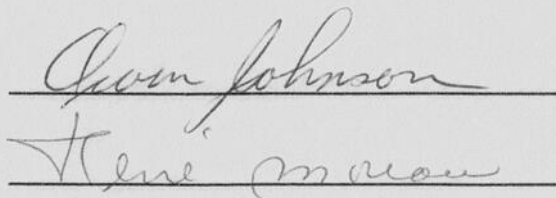 Owen Johnson
René Moreau